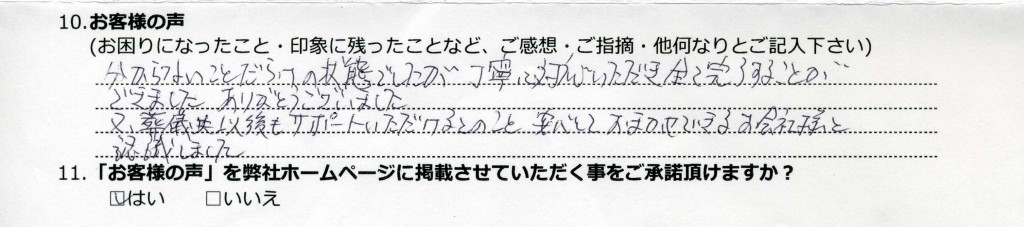 10.お客様の声
(お困りになったこと・印象に残ったことなど、ご感想・ご指摘・他何なりとご記入下さい)
分からないことだらけの状態でしたが 丁寧に対応いただき全て完了することが
できました ありがとうございました
又、葬儀 以後もサポートいただけるとのこと 安心しておまかせできるお会社様と
認識しました
11.「お客様の声」を弊社ホームページに掲載させていただく事をご承諾頂けますか？
☑はい □いいえ